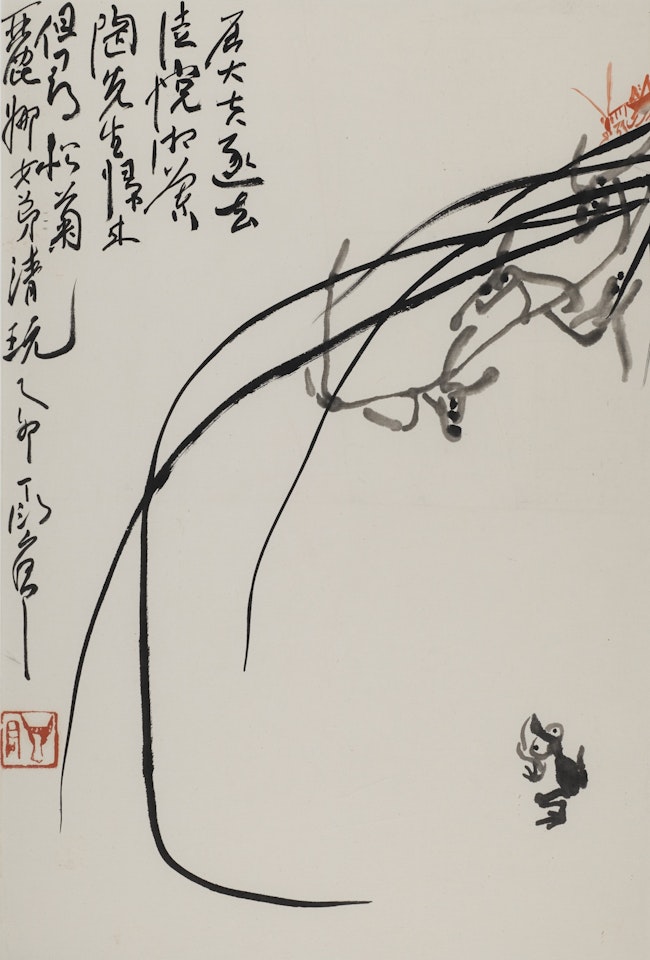 屈大夫逐去
徒悅沅蘭
陶先生歸來
但尋松菊
麗娜女弟清玩乙卯丁衍庸